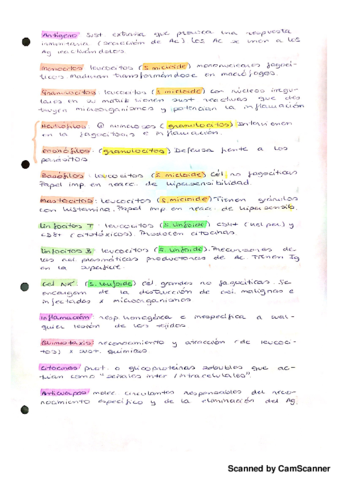 Antígeno sust. extraña que provoca una respuesta
inmunitaria (producción de Ac) los Ac x unen a los
Ag
Monocitos leucocitos (S. mieloide) mononucleares fagocí-
ticos. Maduran transformándose en macrófagos.
Granulocitos leucocitos (S. mieloide) con núcleos irregu-
lares en su matriz tienen sust reactivas que des-
truyen microorganismos y potencian la inflamación
Neutrófilos numerosos (granulocitos) Intervienen
en la fagocitosis e inflamación.
Eosinófilos (granulocitos) Defensa frente a los
parásitos
Basófilos leucocitos (S. mieloide) Cel no fagocíticas
Papel imp en reacc. de hipersensibilidad
Mastocitos leucocitos (S. mieloide) Tienen gránulos
con histamina. Papel imp en reacc. de hipersensib.
Linfocitos T leucocitos (S. linfoide) CD4+ (helper) y
CD8+ (citotóxicos) Producen citocinas
Linfocitos B leucocitos (S. linfoide). Precursores de
las cel. plasmáticas productoras de Ac Tienen Ig
en la superficie
Cel NK (S. linfoide) Cel grandes no fagocíticas. Se
encargan de la destrucción de cel. malignas e
infectadas x microorganismos
Inflamación resp homogénea e inespecífica a cual-
quier lesión de los tejidos
Quimiotaxis reconocimiento y atracción (de leucoci-
tos) x sust. químicas
Citocinas prot. o glicoproteínas solubles que ac-
túan como "señales inter / intracelulares"
Anticuerpos circulantes responsables del reco-
nocimiento específico y de la eliminación del Ag.
Scanned by CamScanner